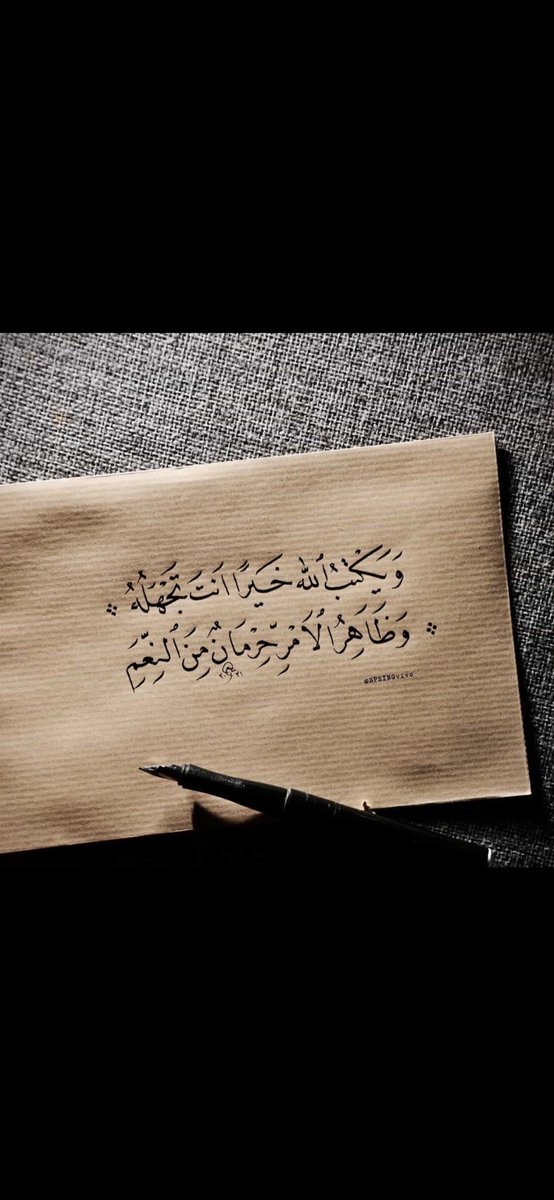 وَيَكْتُبُ ٱللهُ خَيرًا اَنتَ تَجْهَلُهُ
وَظَاهِرُ الْاَمْرِ حِرْمَانٌ مِنَ ٱلنِعَّمِ
@SPRINGvivo